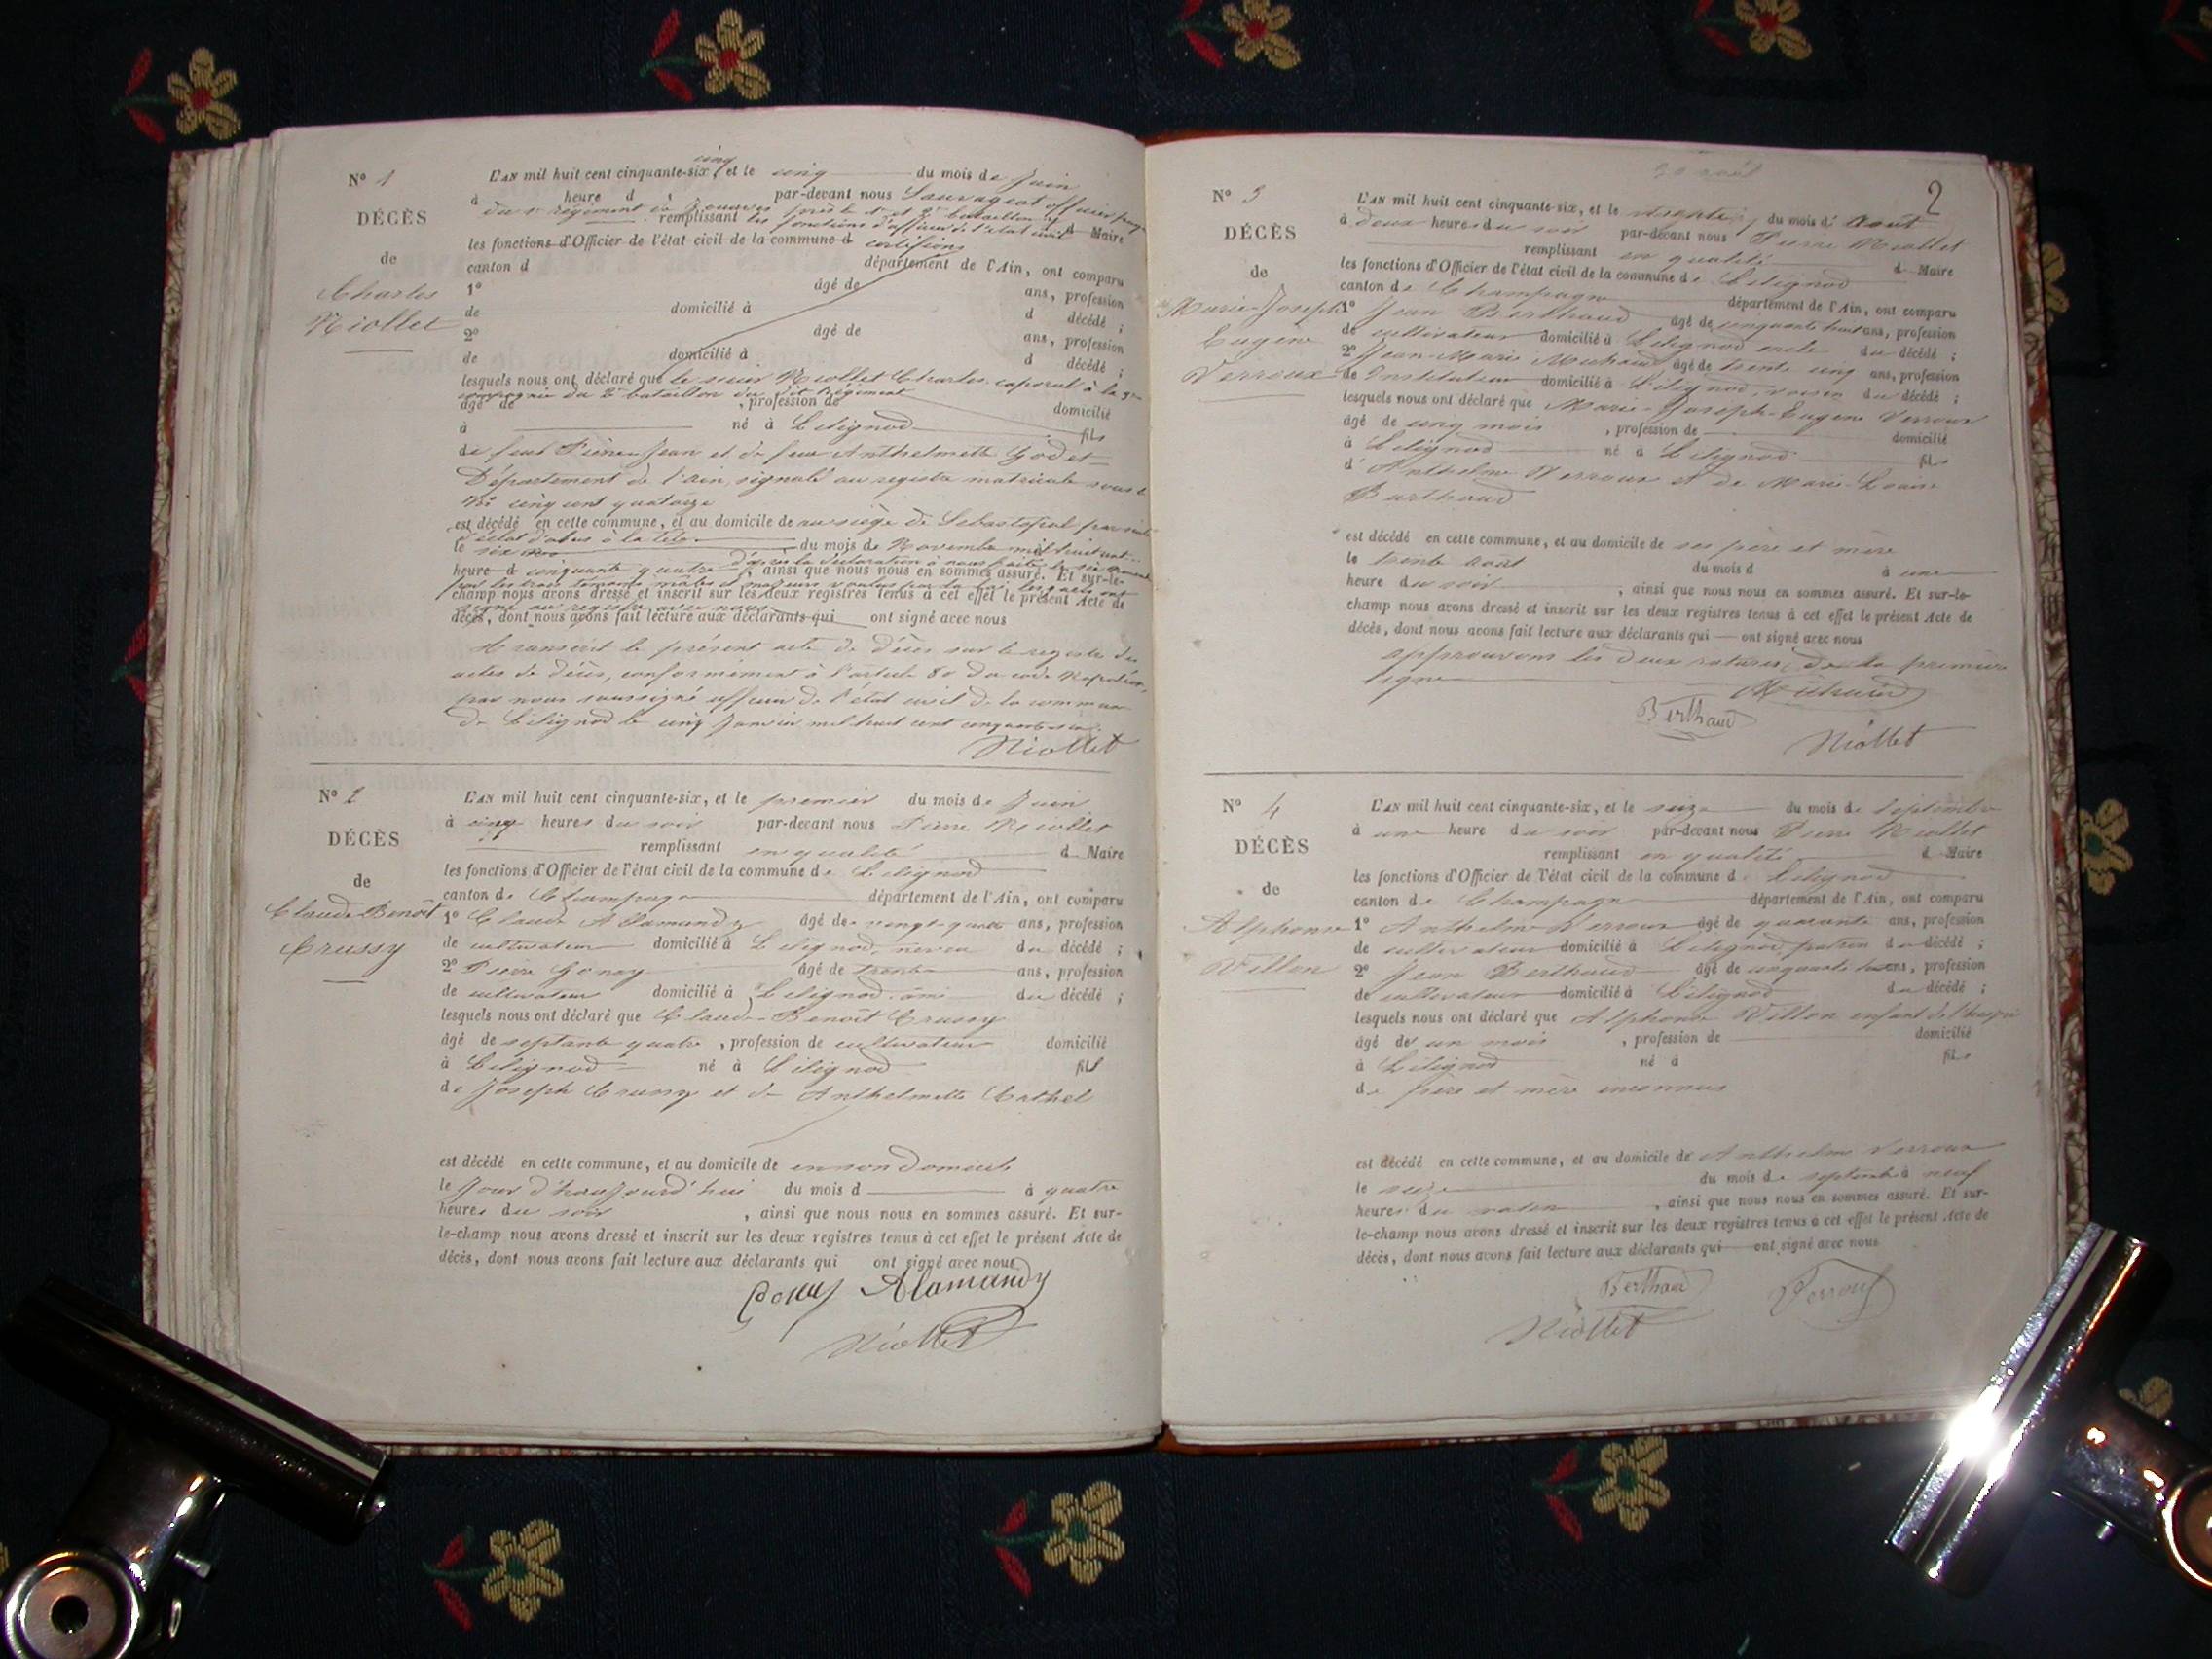 N° 1
DÉCÈS
de
Charles
Niollet
cinq
L'AN mil huit cent cinquante-six, et le cinq du mois de Juin
à heure d par-devant nous Sauvageat officier
du régiment de Zouaves
remplissant les fonctions d'officier de l'état civil d Maire
les fonctions d'Officier de l'état civil de la commune d certifions
canton d département de l'Ain, ont comparu
1° âgé de ans, profession
de domicilié à d décédé ;
2° âgé de ans, profession
de domicilié à d décédé ;
lesquels nous ont déclaré que le sieur Niollet Charles, caporal à la
compagnie du 2e bataillon du dit Régiment
âgé de , profession de domicilié
à né à Lilignod fils
de feu Pierre Jean et de feue Anthelmette Godet
Département de l'ain, signalé au registre matricule sous le
N° cinq cent quatorze
est décédé en cette commune, et au domicile de au siège de Sébastopol par suite
d'éclat d'obus à la tête
le six du mois de Novembre mil huit cent
heure d cinquante quatre d'après la déclaration à nous faite , ainsi que nous nous en sommes assuré. Et sur-le-
par les trois témoins mâles et majeurs voulus par la loi lesquels ont
champ nous avons dressé et inscrit sur les deux registres tenus à cet effet le présent Acte de
signé au registre avec nous
décès, dont nous avons fait lecture aux déclarants qui ont signé avec nous
Transcrit le présent acte de décès sur le registre des
actes de décès, conformément à l'article 80 du code Napoléon,
par nous soussigné officier de l'état civil de la commune
de Lilignod le cinq Janvier mil huit cent cinquante-six.
Niollet
N° 2
DÉCÈS
de
Claude Benoît
Crussy
L'AN mil huit cent cinquante-six, et le premier du mois de Juin
à cinq heures du soir par-devant nous Pierre Niollet
remplissant en qualité d Maire
les fonctions d'Officier de l'état civil de la commune de Lilignod
canton de Champagne département de l'Ain, ont comparu
1° Claude Alamandy âgé de vingt-quatre ans, profession
de cultivateur domicilié à Lilignod, neveu du décédé ;
2° Pierre Gonoy âgé de trente ans, profession
de cultivateur domicilié à Lilignod ami du décédé ;
lesquels nous ont déclaré que Claude-Benoît Crussy
âgé de septante quatre , profession de cultivateur domicilié
à Lilignod né à Lilignod fils
de Joseph Crussy et de Anthelmette Cathel
est décédé en cette commune, et au domicile de en son Domicile
le Jour d'haujourd'hui du mois d à quatre
heures du soir , ainsi que nous nous en sommes assuré. Et sur-
le-champ nous avons dressé et inscrit sur les deux registres tenus à cet effet le présent Acte de
décès, dont nous avons fait lecture aux déclarants qui ont signé avec nous
Alamandy
Niollet
30 août
2
N° 3
DÉCÈS
de
Marie-Joseph
Eugène
Verroux
L'AN mil huit cent cinquante-six, et le du mois d' Août
à deux heures du soir par-devant nous Pierre Niollet
remplissant en qualité d Maire
les fonctions d'Officier de l'état civil de la commune de Lilignod
canton de Champagne département de l'Ain, ont comparu
1° Jean Berthaud âgé de cinquante huit ans, profession
de cultivateur domicilié à Lilignod oncle du décédé ;
2° Jean-Marie Michaud âgé de trente cinq ans, profession
de Instituteur domicilié à Lilignod, voisin du décédé ;
lesquels nous ont déclaré que Marie-Joseph-Eugène Verroux
âgé de cinq mois , profession de domicilié
à Lilignod né à Lilignod fils
d'Anthelme Verroux et de Marie-Louise
Berthaud
est décédé en cette commune, et au domicile de ses père et mère
le trente août du mois d à une
heure du soir , ainsi que nous nous en sommes assuré. Et sur-le-
champ nous avons dressé et inscrit sur les deux registres tenus à cet effet le présent Acte de
décès, dont nous avons fait lecture aux déclarants qui ont signé avec nous
approuvons les deux ratures, de la première
ligne Michaud
Berthaud
Niollet
N° 4
DÉCÈS
de
Alphonse
Villon
L'AN mil huit cent cinquante-six, et le seize du mois de Septembre
à une heure du soir par-devant nous Pierre Niollet
remplissant en qualité d Maire
les fonctions d'Officier de l'état civil de la commune d Lilignod
canton de Champagne département de l'Ain, ont comparu
1° Anthelme Verroux âgé de quarante ans, profession
de cultivateur domicilié à Lilignod, patron du décédé ;
2° Jean Berthaud âgé de cinquante ans, profession
de cultivateur domicilié à Lilignod du décédé ;
lesquels nous ont déclaré que Alphonse Villon enfant de l'hospice
âgé de un mois , profession de domicilié
à Lilignod né à fils
de père et mère inconnus
est décédé en cette commune, et au domicile de Anthelme Verroux
le seize du mois de septembre à neuf
heures du matin , ainsi que nous nous en sommes assuré. Et sur-
le-champ nous avons dressé et inscrit sur les deux registres tenus à cet effet le présent Acte de
décès, dont nous avons fait lecture aux déclarants qui ont signé avec nous
Berthaud Verroux
Niollet